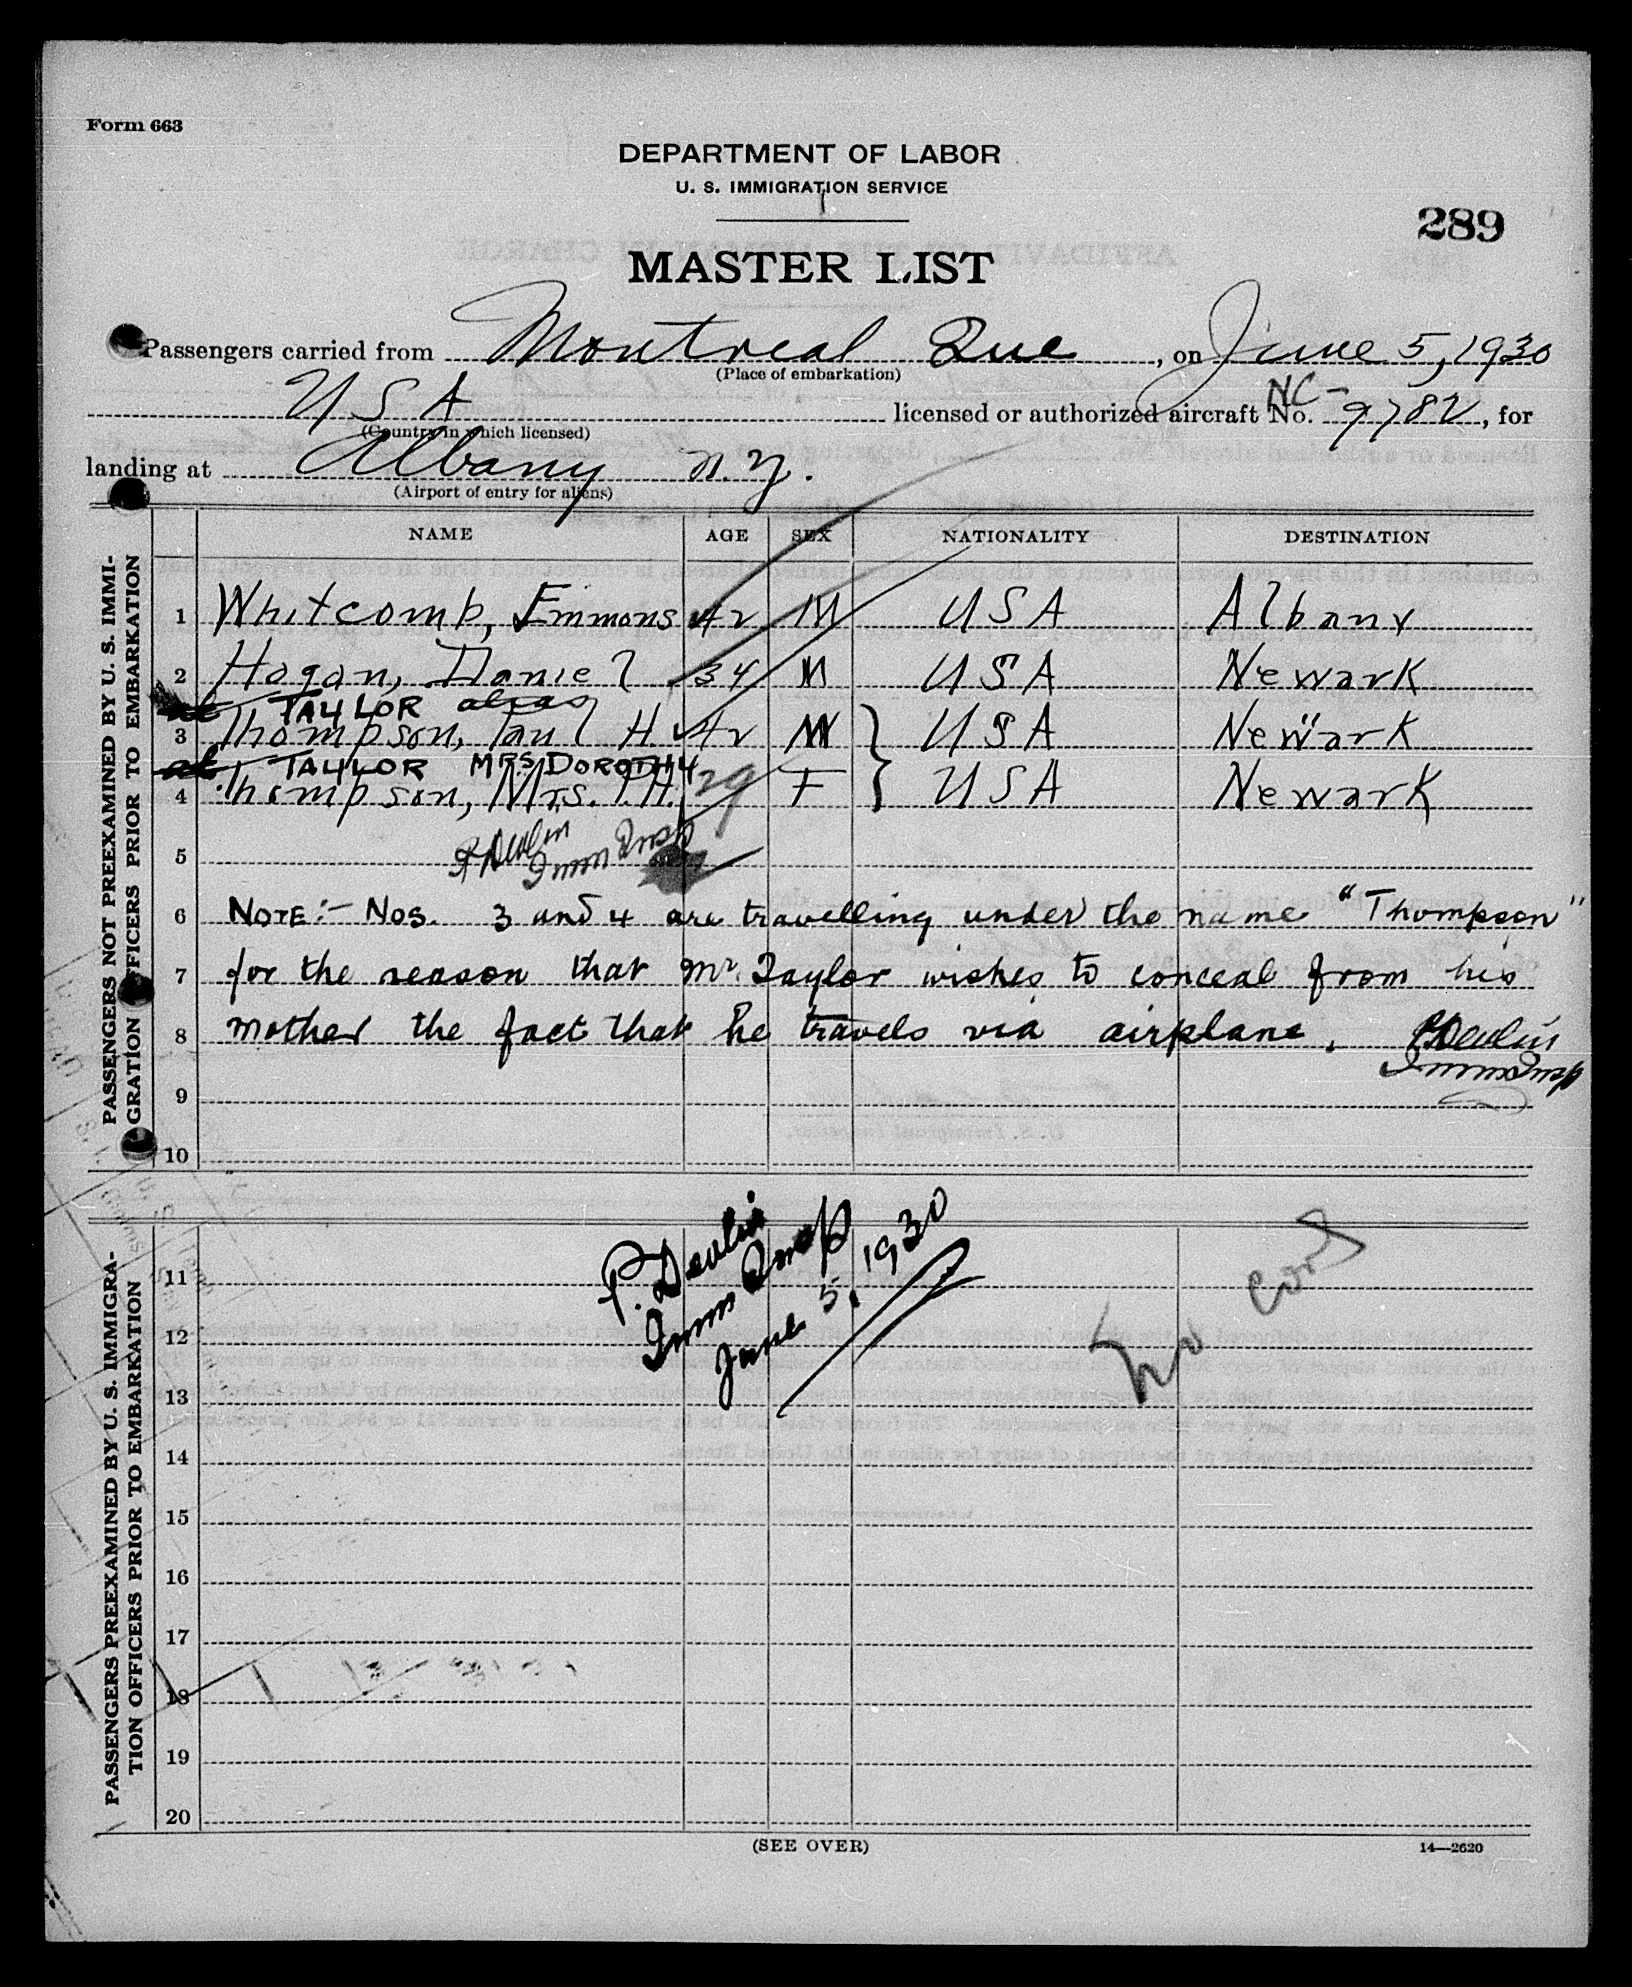 Form 663
DEPARTMENT OF LABOR
U. S. IMMIGRATION SERVICE
289
MASTER LIST
Passengers carried from Montreal Que, on June 5, 1930
(Place of embarkation)
USA licensed or authorized aircraft No. NC-9782, for
(Country in which licensed)
landing at Albany N.Y.
(Airport of entry for aliens)
NAME AGE SEX NATIONALITY DESTINATION
PASSENGERS NOT PREEXAMINED BY U. S. IMMI-
GRATION OFFICERS PRIOR TO EMBARKATION
1 Whitcomb, Emmons 42 M USA Albany
2 Hogan, Daniel 34 M USA Newark
TAYLOR alias
3 Thompson, Paul H. 42 M USA Newark
TAYLOR MRS DOROTHY
4 Thompson, Mrs. P.H. 29 F USA Newark
P Devlin
Imm Insp
5
6 NOTE:- Nos. 3 and 4 are travelling under the name "Thompson"
7 for the reason that Mr. Taylor wishes to conceal from his
8 mother the fact that he travels via airplane. P Devlin
Imm Insp
9
10
PASSENGERS PREEXAMINED BY U. S. IMMIGRA-
TION OFFICERS PRIOR TO EMBARKATION
P. Devlin
Imm Insp
June 5, 1930
no card
11
12
13
14
15
16
17
18
19
20
(SEE OVER)
14—2620